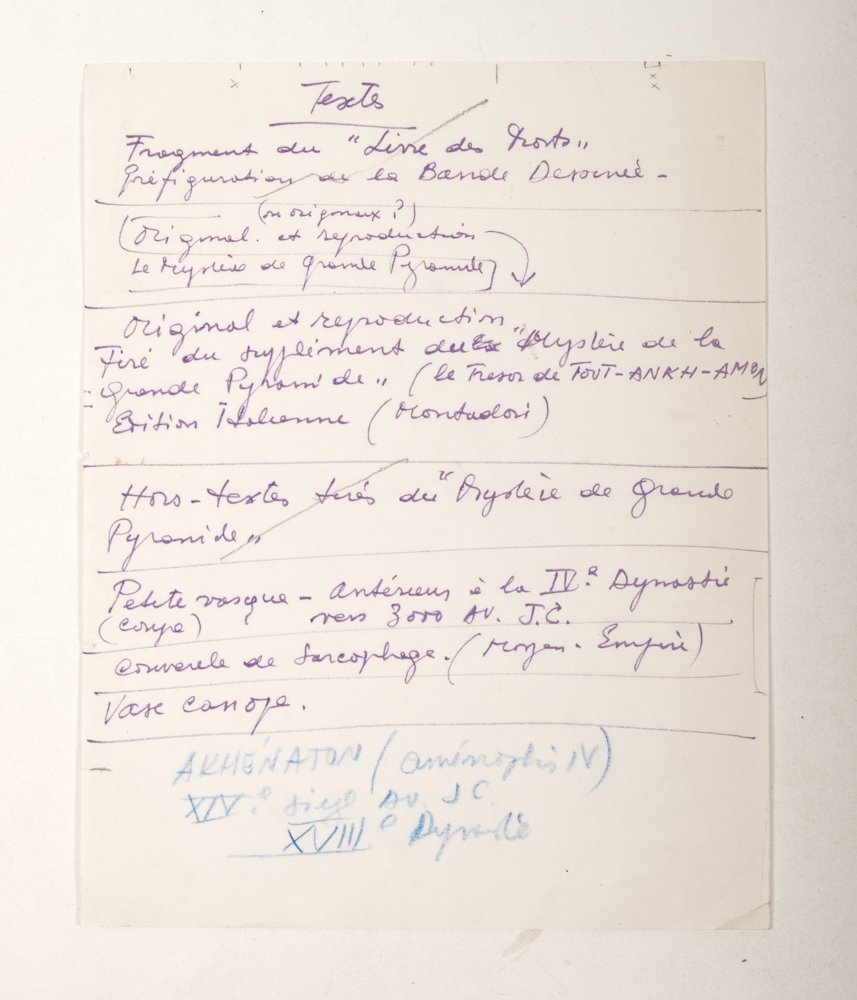 Textes
Fragment du "Livre des Morts"
Préfiguration de la Bande Dessinée -
(ou origenaux ?)
(Original. et reproduction
Le Mystère de Grande Pyramide)
Original et reproduction
Tiré du supplément du "Mystère de la
Grande Pyramide" (le Tresor de TOUT-ANKH-AMON
Edition Italienne (Montadori)
Hors-textes tirés du "Mystère de Grande
Pyramide"
Petite vasque - Antérieur à la IVe Dynastie
(coupe) vers 3000 AV. J.C.
Couvercle de Sarcophage. (Moyen-Empire)
Vase canope.
AKHÉNATON (Aménophis IV)
XIVe siège AV. J C.
XVIIIe Dynastie